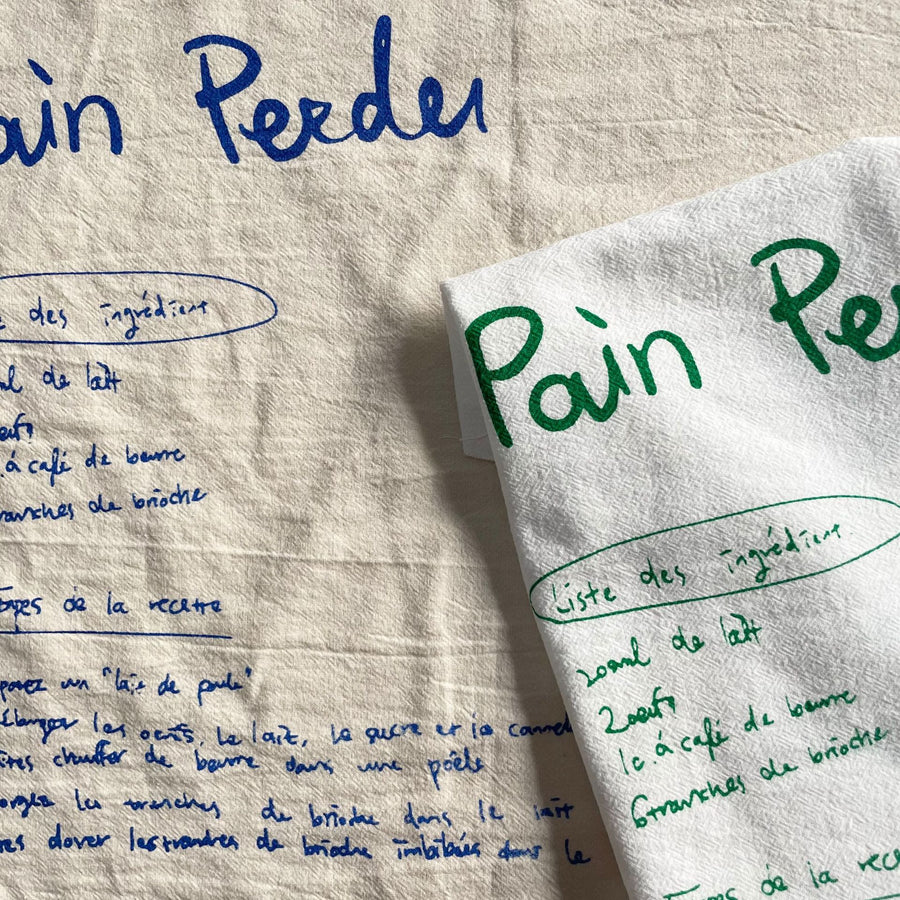 ain Perdu
des ingrédient
ml de lait
oeufs
.à café de beurre
ranches de brioche
Étapes de la recette
parez un "lait de poule"
élanger les oeufs, le lait, le sucre et la cannel
ites chauffer de beurre dans une poêle
ongez les tranches de brioche dans le lait
tes dorer les tranches de brioche imbibées dans le
Pain Pe
Liste des ingrédient
200ml de lait
2oeufs
1c.à café de beurre
6tranches de brioche
de la rece